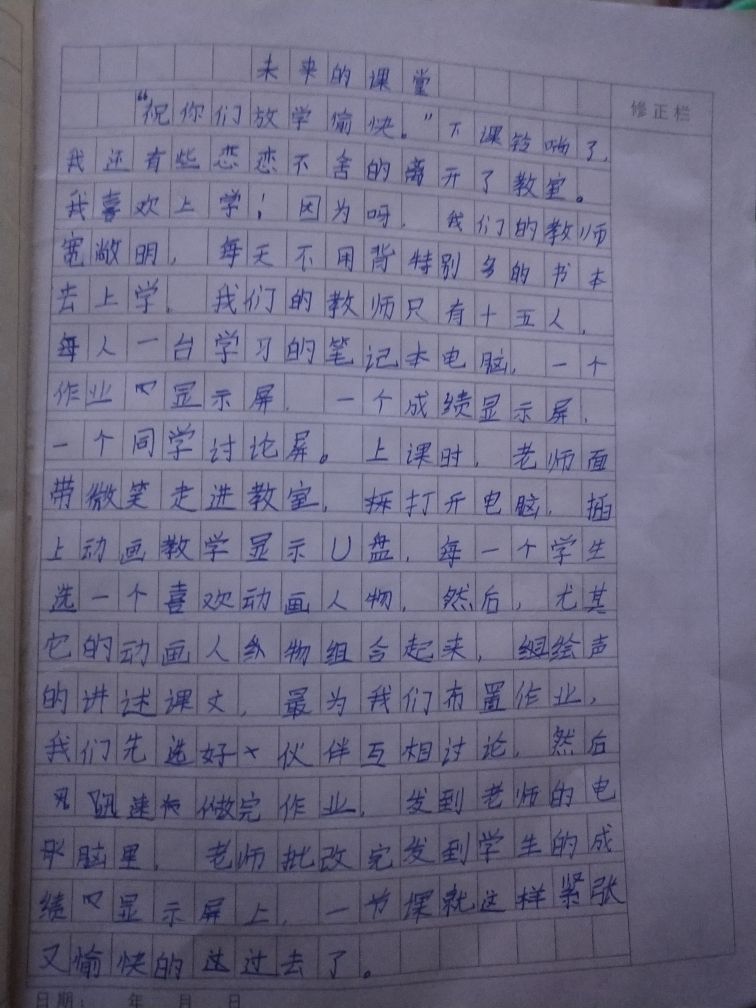 未来的课堂
修正栏
“祝你们放学愉快。”下课铃响了,
我还有些恋恋不舍的离开了教室。
我喜欢上学!因为吗,我们的教师
宽敞明,每天不用背特别多的书本
去上学,我们的教师只有十五人,
每人一台学习的笔记本电脑,一个
作业显示屏,一个成绩显示屏,
一个同学讨论屏。上课时,老师面
带微笑走进教室,打开电脑,插
上动画教学显示U盘,每一个学生
选一个喜欢动画人物,然后,尤其
它的动画人物组合起来,绘声
的讲述课文,最为我们布置作业,
我们先选好伙伴互相讨论,然后
迅速做完作业,发到老师的电
脑里,老师批改完发到学生的成
绩显示屏上,一节课就这样紧张
又愉快的过去了。
日期: 年 月 日